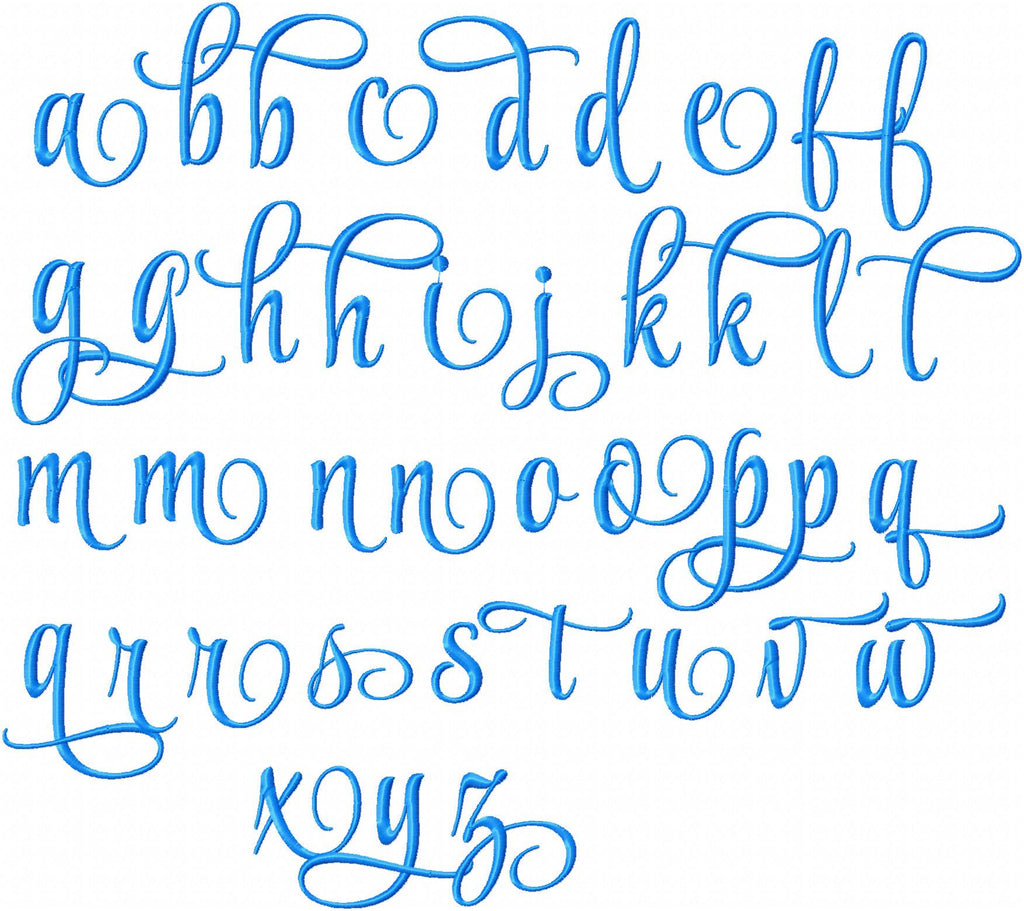 a b b c d d e f f
g g h h i j k k l l
m m n n o o p p q
q r r s s t u v w
x y z